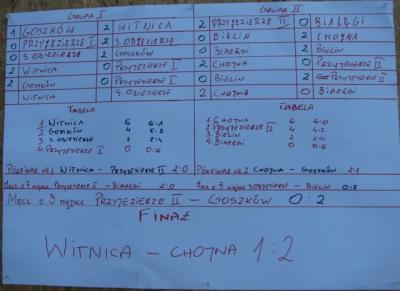 GRUPA I GRUPA II
1 GOSZKÓW 2 WITNICA 2 PRZYJEZIERZE II 0 BIAŁĘGI
0 PRZYJEZIERZE I 2 S. OBJEZIERZE 0 BIELIN 2 CHOJNA
0 S. OBJEZIERZE 2 GOSZKÓW 0 BIAŁĘGI 2 BIELIN
2 WITNICA 0 PRZYJEZIERZE I 2 CHOJNA 0 PRZYJEZIERZE II
2 GOSZKÓW 0 PRZYJEZIERZE I 0 BIELIN 2 PRZYJEZIERZE II
WITNICA S. OBJEZIERZE 2 CHOJNA 0 BIAŁĘGI
TABELA TABELA
1. WITNICA 6 6:1 1. CHOJNA 6 6:0
2. GOSZKÓW 4 5:2 2. PRZYJEZIERZE II 4 4:2
3. S. OBJEZIERZE 2 2:4 3. BIELIN 2 2:4
4. PRZYJEZIERZE I 0 0:6 4. BIAŁĘGI 0 0:6
PÓŁFINAŁ NR.1 WITNICA - PRZYJEZIERZE II 2:0 PÓŁFINAŁ NR.2 CHOJNA - GOSZKÓW 2:1
MECZ O 7 MIEJSCE PRZYJEZIERZE I - BIAŁĘGI 2:0 MECZ O 5 MIEJSCE S. OBJEZIERZE - BIELIN 0:2
MECZ O 3 MIEJSCE PRZYJEZIERZE II - GOSZKÓW 0:2
FINAŁ
WITNICA - CHOJNA 1:2